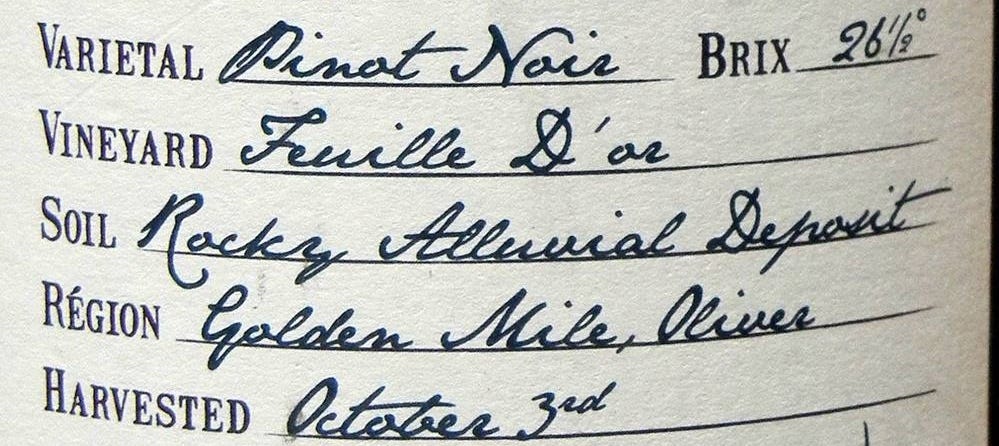 VARIETAL Pinot Noir BRIX 26½°
VINEYARD Feuille D'or
SOIL Rocky Alluvial Deposit
RÉGION Golden Mile, Oliver
HARVESTED October 3rd